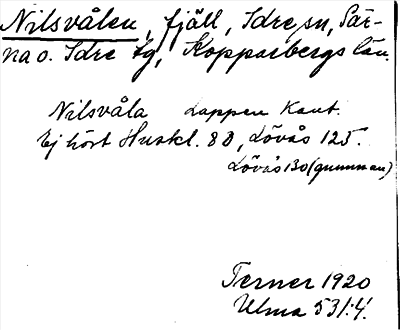 Nilsvålen, fjäll, Idre sn, Sär-
na o. Idre tg, Kopparbergs län.
Nilsvåla Lappen Kant.
Ej hört Huskl. 88, Lövås 125.
Lövås 130 (gumman)
Terner 1920
Ulma 531:4.